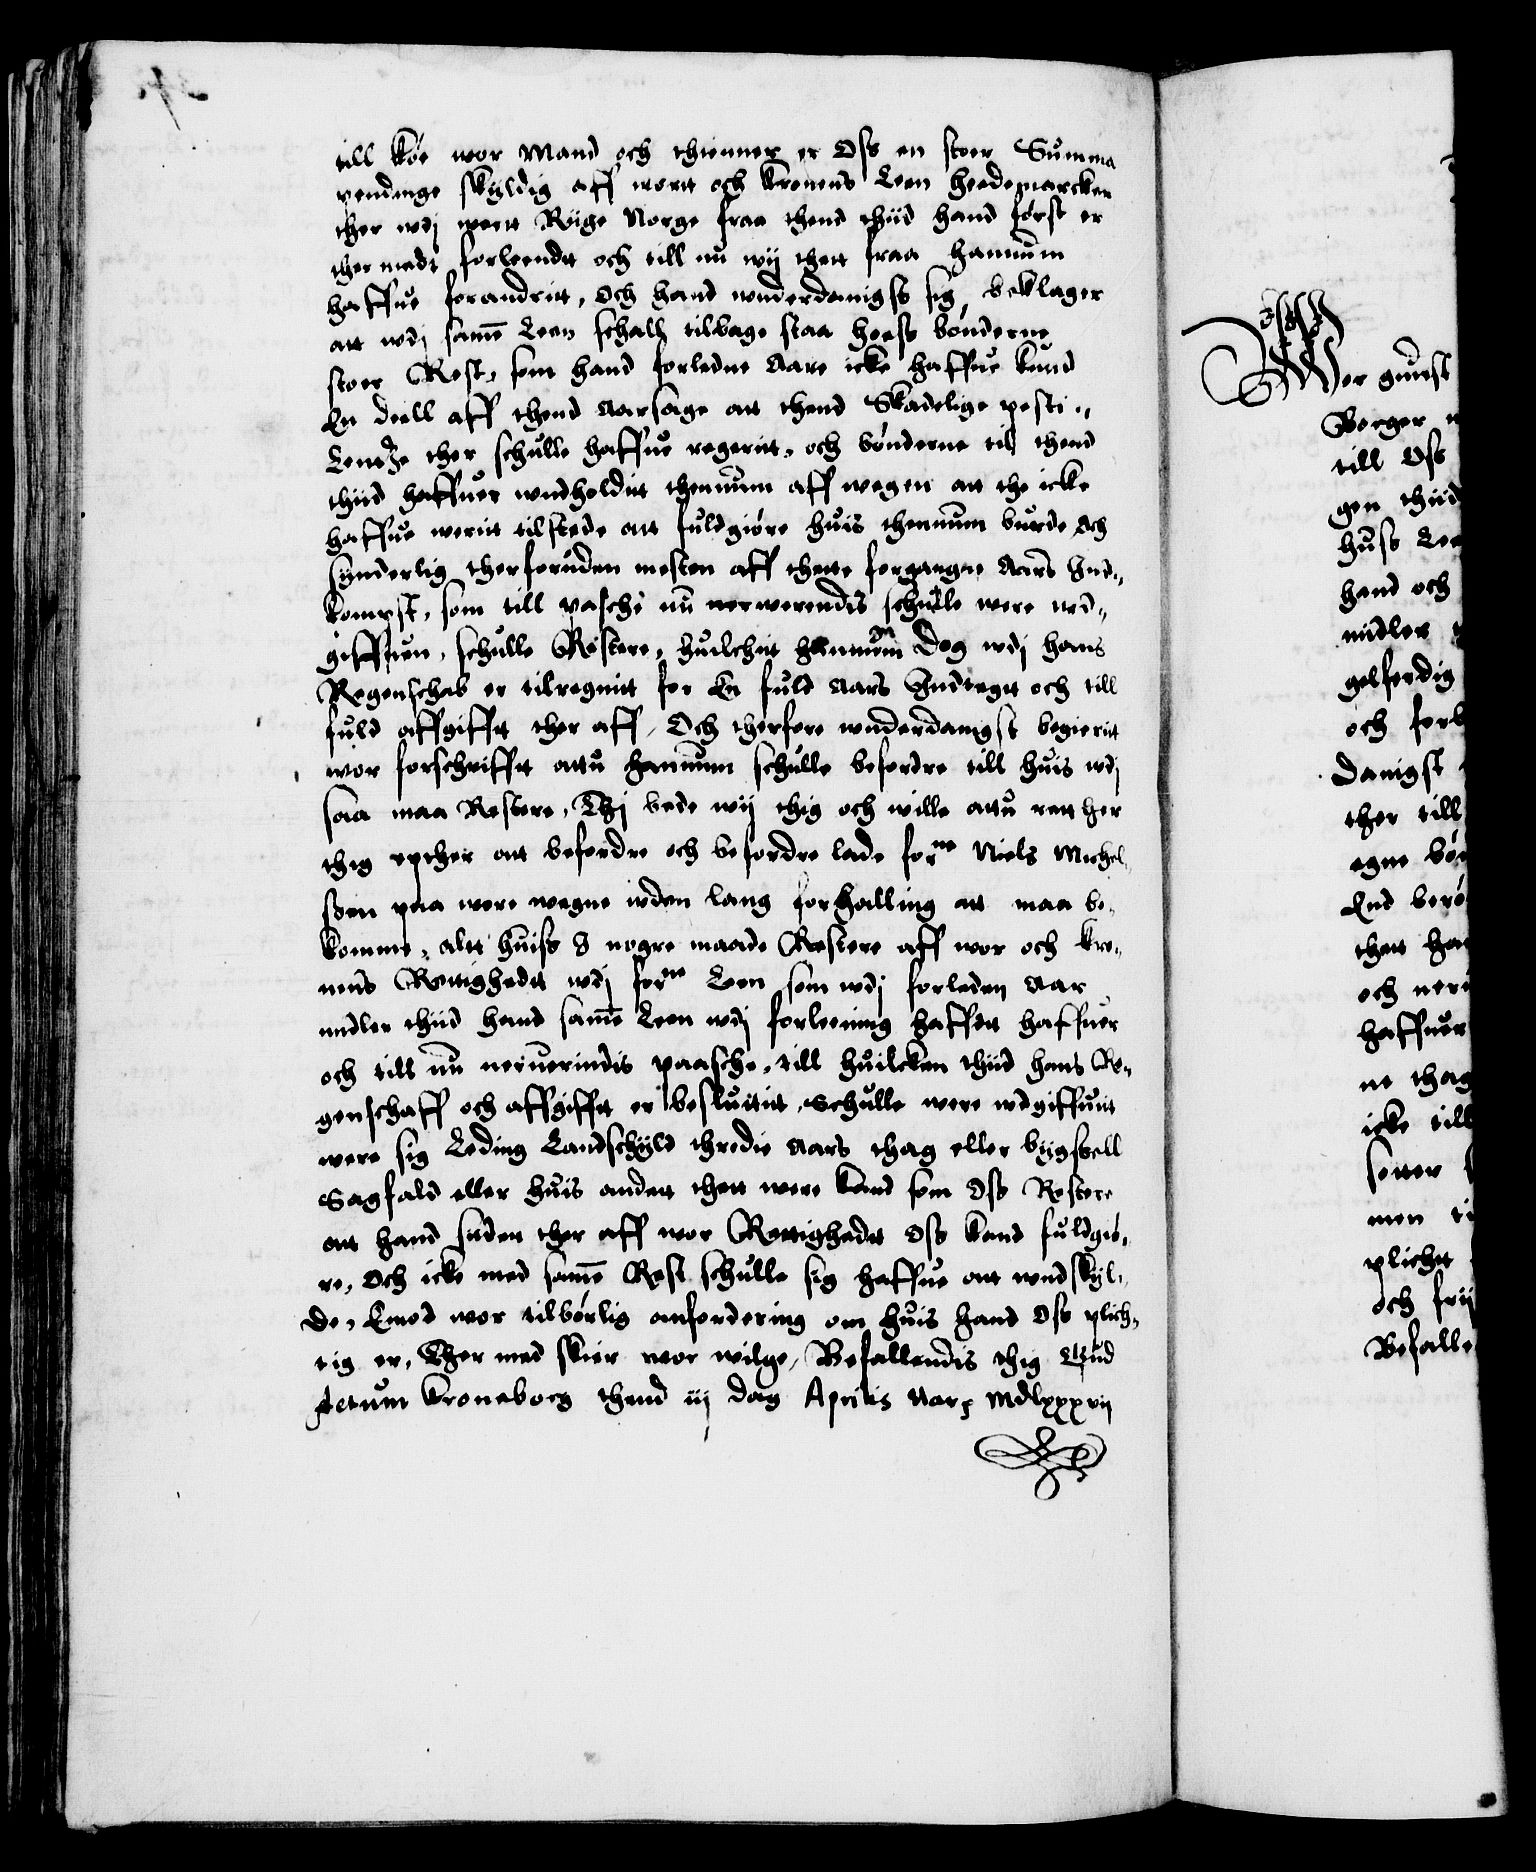 till Køe wor Mand och thienner er Oss en stoer Summa
pendinge skyldig aff wortt och Kronens Leen Heedemarcken
ther wdj wortt Riige Norge fraa thend thiid hand først er
ther medt forleendtt och till nu wij thett fraa hannum
haffue forandritt, Och hand wnderdanigst sig beklager
att wdj same Leen schall tilbage staa hoess bønderne
stoer Rest, som hand forledne Aare icke haffue kund
En deell aff thend Aarsage att thend Skadelige pesti-
Lentze ther schulle haffue regeritt, och bønderne til thend
thiid haffuer wndholditt thennum aff wegen att the icke
haffue weritt tilstede att fuldgiøre huis thennum burde, och
synderlig therforuden mesten aff thette forgangne Aars Ind-
kompst, som till pasche nu nerwerendis schulle were wd-
giffuen, schulle Restere, huilchitt hannum dog wdj hans
Regenschab er tilregnitt for En fuld Aars Indtegtt och till
fuld affgifftt ther aff, Och therfore wnderdanigst begieritt
wor forschrifftt attu hannum schulle befordre till huis wdj
saa maa Restere, Thj bede wij thig och wille attu rett her
thig epther att befordre och befordre lade forne Niels Michel-
søen paa wore wegne wden lang forhalling att maa be-
komme, altt huiss I nogre maade Restere aff wor och Kro-
nens Rettighedtt wdj forne Leen som wdj forleden Aar
midler thiid hand same Leen wdj forleening hafftt haffuer
och till nu neruerindis paasche, till huilcken thiid hans Re-
genschaff och affgifftt er besluttit, Schulle were wdgiffuit
were sig Leding Landschyld thredie Aars thag eller bygsell
Sagfald eller huis andett thett were kand som Oss Restere
att hand siden ther aff wor Rettighedtt Oss kand fuldgiø-
re, Och icke med same Rest schulle sig haffue att wndskyl-
de, Emod wor tilbørlig anfordering om huis hand Oss plich-
tig er, Ther med skier wor wilge, Befallendis thig Gud
Actum Kroneborg thend iij dag Aprilis Aar MDlxxxvij
Wor gunst
Borger
till Oss
gen thiid
huss Lee
hand och
midler
gelferdig
och forb
danigst
ther till
egne bø
End berø
thett ha
och ner
haffuer
ne thag
icke till
setter
men ti
plichtt
och frij
Befalle